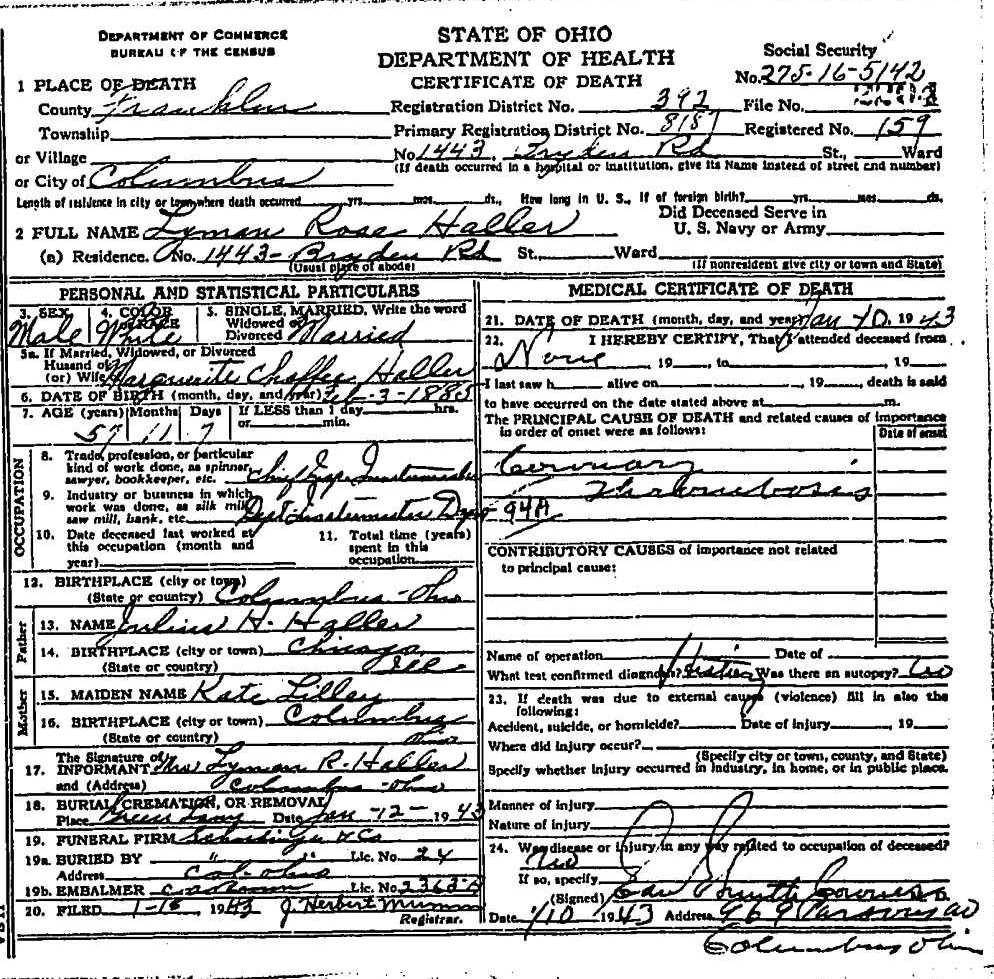 DEPARTMENT OF COMMERCE
BUREAU OF THE CENSUS
STATE OF OHIO
DEPARTMENT OF HEALTH
CERTIFICATE OF DEATH
Social Security
No. 275-16-5142
1 PLACE OF DEATH
County Franklin
Registration District No. 392 File No.
Township
Primary Registration District No. 8187 Registered No. 159
or Village
No 1443, Bryden Rd St., Ward
(If death occurred in a hospital or institution, give its Name instead of street and number)
or City of Columbus
Length of residence in city or town where death occurred yrs. mos. ds. How long in U. S., if of foreign birth? yrs. mos. ds.
2 FULL NAME Lyman Rose Haller
Did Deceased Serve in
U. S. Navy or Army
(a) Residence. No. 1443 - Bryden Rd St., Ward
(Usual place of abode) (If nonresident give city or town and State)
PERSONAL AND STATISTICAL PARTICULARS
3. SEX 4. COLOR or RACE 5. SINGLE, MARRIED, Write the word
Widowed or
Divorced
Male White Married
5a. If Married, Widowed, or Divorced
Husand of
(or) Wife Marguerite Chaffee Haller
6. DATE OF BIRTH (month, day, and year) Feb-3-1885
7. AGE (years) Months Days If LESS than 1 day hrs.
or min.
57 11 7
OCCUPATION
8. Trade, profession, or particular
kind of work done, as spinner,
sawyer, bookkeeper, etc. Chief
9. Industry or business in which
work was done, as silk mill,
saw mill, bank, etc.
10. Date deceased last worked at
this occupation (month and
year)
11. Total time (years)
spent in this
occupation
12. BIRTHPLACE (city or town)
(State or country) Columbus - Ohio
Father
13. NAME Julius H. Haller
14. BIRTHPLACE (city or town) Chicago
(State or country) Ill
Mother
15. MAIDEN NAME Kate Lilley
16. BIRTHPLACE (city or town) Columbus
(State or country) Ohio
17. The Signature of
INFORMANT Mrs Lyman R. Haller
and (Address) Columbus - Ohio
18. BURIAL, CREMATION, OR REMOVAL
Place Green Lawn Date Jan - 12 - 1943
19. FUNERAL FIRM & Co
19a. BURIED BY " " Lic. No. 24
Address Col - Ohio
19b. EMBALMER Lic. No. 2362-A
20. FILED 1-15 1943 J. Herbert
Registrar.
MEDICAL CERTIFICATE OF DEATH
21. DATE OF DEATH (month, day, and year) Jan-10, 1943
22. I HEREBY CERTIFY, That I attended deceased from
None, 19, to, 19
I last saw h alive on, 19, death is said
to have occurred on the date stated above at m.
The PRINCIPAL CAUSE OF DEATH and related causes of importance
in order of onset were as follows:
Date of onset
Coronary
Thrombosis
94A
CONTRIBUTORY CAUSES of importance not related
to principal cause:
Name of operation Date of
What test confirmed diagnosis? History Was there an autopsy? no
23. If death was due to external cause (violence) fill in also the
following:
Accident, suicide, or homicide? Date of injury, 19
Where did injury occur?
(Specify city or town, county, and State)
Specify whether injury occurred in industry, in home, or in public place.
Manner of injury
Nature of injury
24. Was disease or injury in any way related to occupation of deceased?
no
If so, specify
(Signed) Smith Coroner M. D.
Date 1/10 1943 Address 969 Parsons av
Columbus Ohio